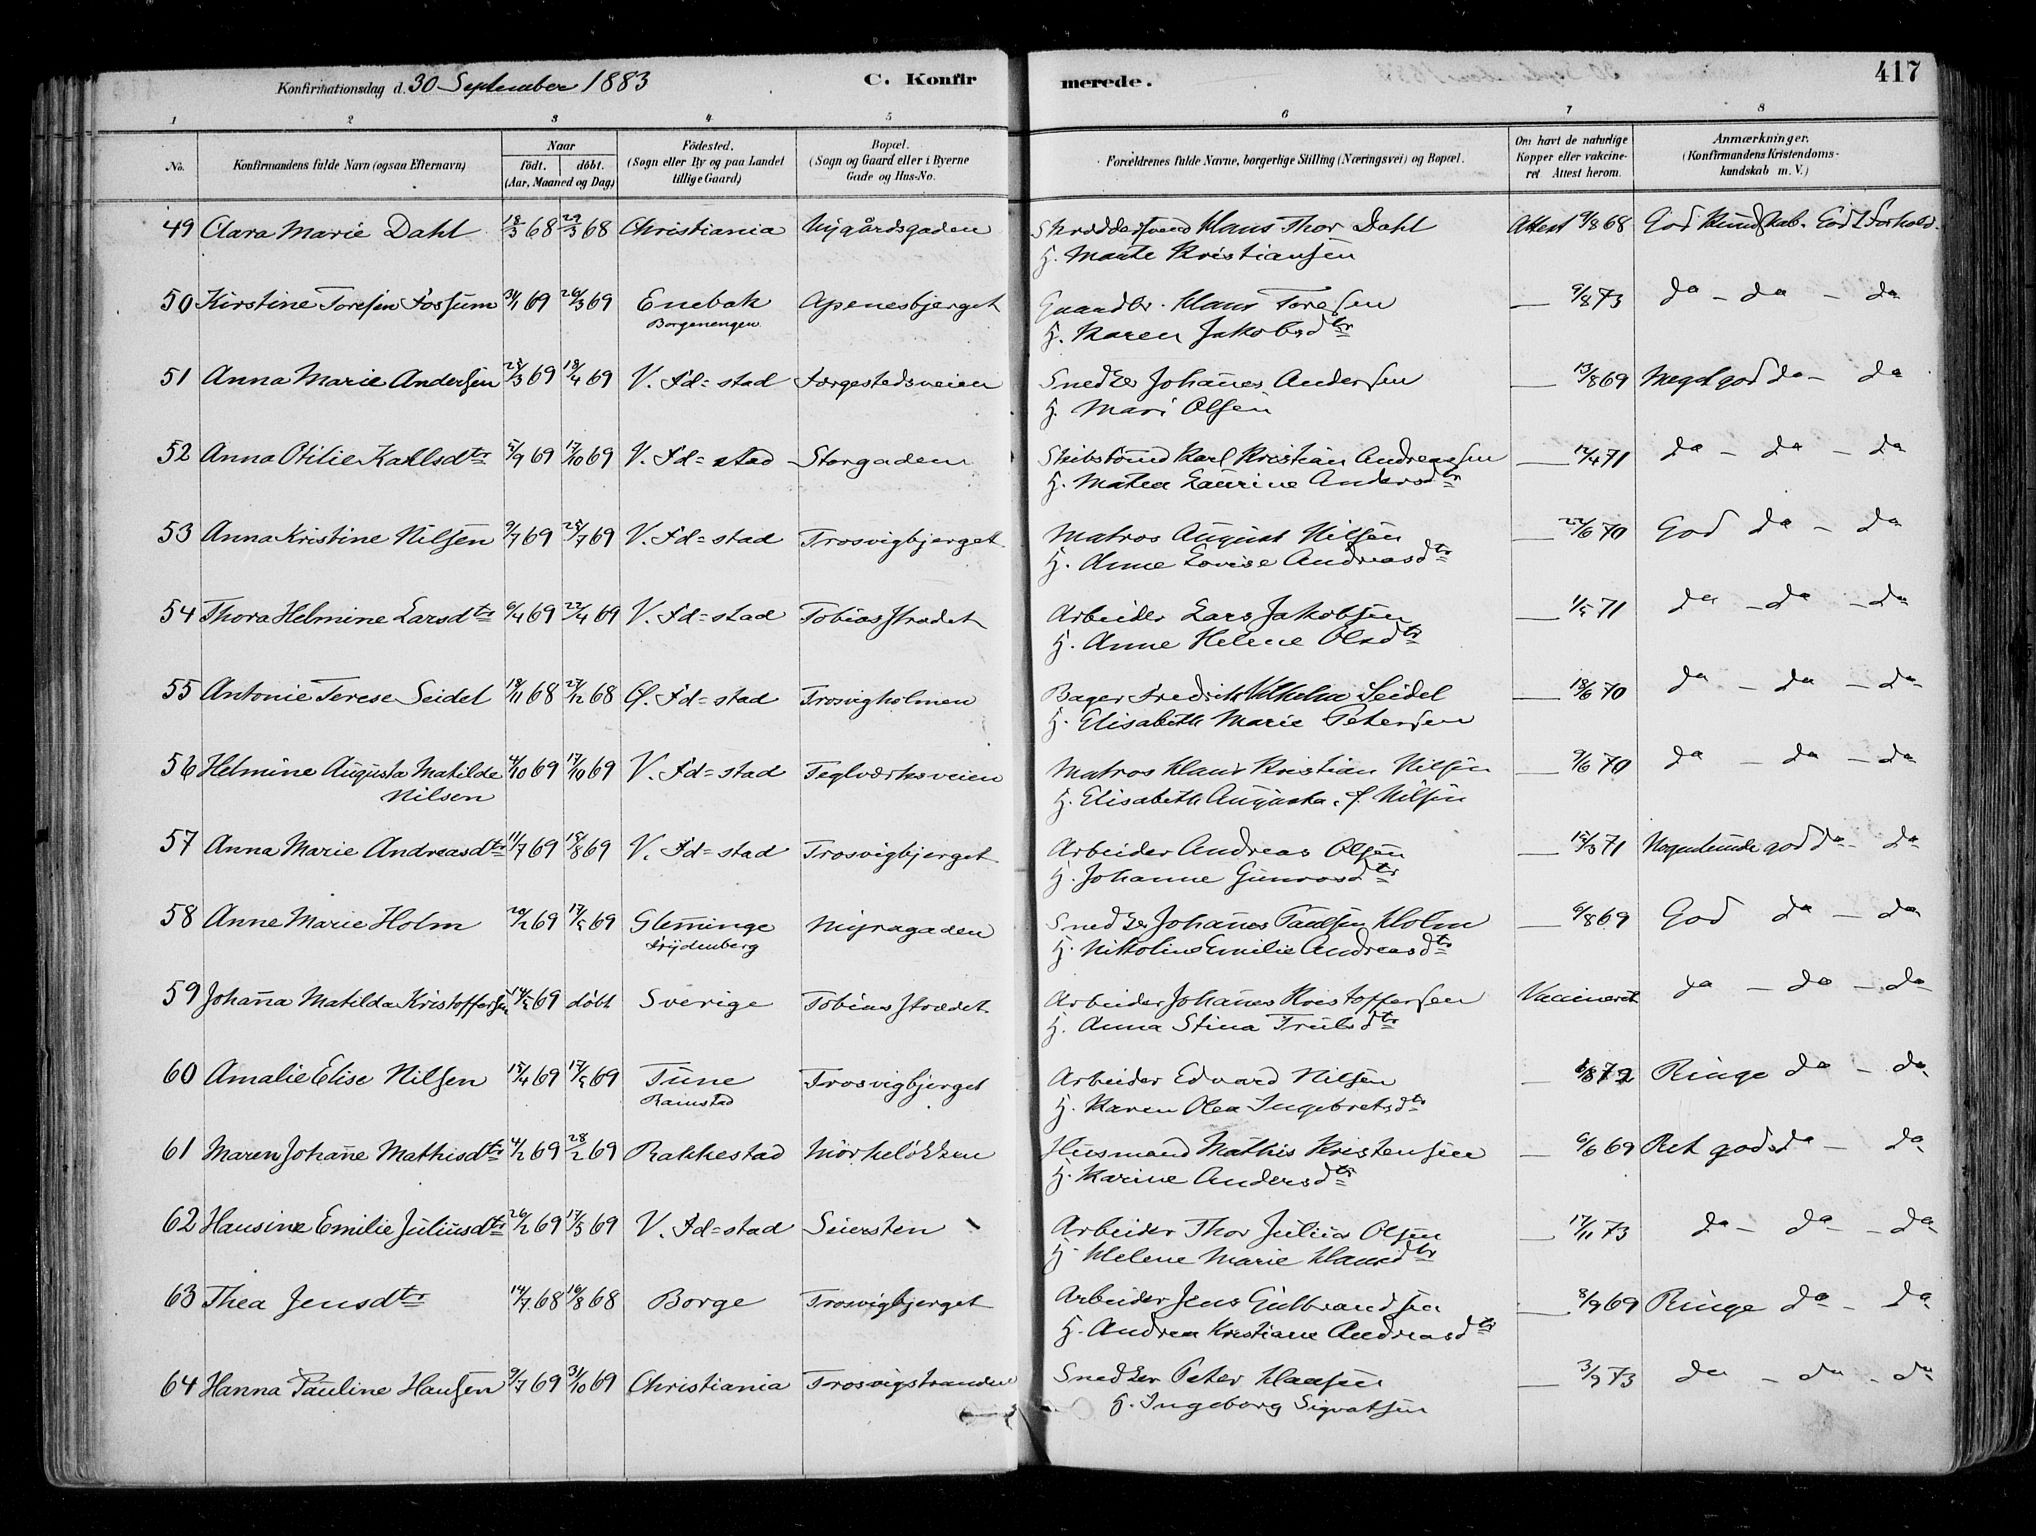 Konfirmationsdag d. 30 September 1883 C. Konfirmerede. 417
1 2 3 4 5 6 7 8
No. Konfirmandens fulde Navn (ogsaa Efternavn) Naar födt. döbt. (Aar, Maaned og Dag) Födested. (Sogn eller By og paa Landet tillige Gaard) Bopæl. (Sogn og Gaard eller i Byerne Gade og Hus-No. Forældrenes fulde Navne, borgerlige Stilling (Næringsvei) og Bopæl. Om havt de naturlige Kopper eller vakcineret Attest herom. Anmærkninger. (Konfirmandens Kristendomskundskab m. V.)
49 Clara Marie Dahl 18/3 68 29/3 68 Christiania Nygårdsgaden Skræddersvend Klaus Thor Dahl Attest 9/8 68 God Kundskab. Godt Forhold.
H. Marte Kristiansen
50 Kirstine Toresen Fossum 31/1 69 26/3 69 Enebak Apenesbjerget Gaardbr. Klaus Toresen — 9/8 73 da – da – da
Borgenengen H. Karen Jakobsdtr
51 Anna Marie Andersen 25/3 69 18/4 69 V. Fd=stad Færgestedsveien Snedker Johanes Andersen — 13/8 69 Meget god da – da
H. Mari Olsen
52 Anna Otilie Karlsdtr 5/9 69 17/10 69 V. Fd=stad Storgaden Skibstømd Karl Kristian Andreassen — 12/4 71 da – da – da
H. Matea Laurine Andersdtr
53 Anna Kristine Nilsen 9/7 69 25/7 69 V. Fd=stad Trosvigbjerget Matros August Nilsen — 22/6 70 God da – da
H. Anne Lovise Andreasdtr
54 Thora Helmine Larsdtr 6/4 69 22/4 69 V. Fd=stad Tobiasstrædet Arbeider Lars Jakobsen — 1/5 71 da – da – da
H. Anne Helene Olsdtr
55 Antonie Terese Seidel 18/11 68 27/12 68 Ø. Fd=stad Trosvigholmen Bager Fredrik Vilhelm Seidel — 18/6 70 da – da – da
H. Elisabeth Marie Petersen
56 Helmine Augusta Matilde 4/10 69 17/10 69 V. Fd=stad Teglværksveien Matros Klaus Kristian Nilsen — 9/6 70 da – da – da
Nilsen H. Elisabeth Augusta f. Nilsen
57 Anna Marie Andreasdtr 11/7 69 15/8 69 V. Fd=stad Trosvigbjerget Arbeider Andreas Olsen — 15/3 71 Nogenlunde god da – da
H. Johanne Gunvorsdtr
58 Anne Marie Holm 20/2 69 17/5 69 Glemminge Myragaden Snedker Johanes Paulsen Holm — 6/8 69 God da – da
Frydenberg H. Nikoline Emilie Andreasdtr
59 Johanna Matilda Kristoffersen 14/2 69 döbt Sverige Tobiasstrædet Arbeider Johanes Kristoffersen Vaccineret da – da – da
H. Anna Stina Trulsdtr
60 Amalie Elise Nilsen 15/4 69 17/5 69 Tune Trosvigbjerget Arbeider Edvard Nilsen — 6/8 72 Ringe da – da
Ramstad H. Karen Olea Ingebretsdtr
61 Maren Johanne Mathisdtr 4/2 69 28/2 69 Rakkestad Mörkelökken Husmand Mathis Kristensen — 6/6 69 Ret god da – da
H. Karine Andersdtr
62 Hansine Emilie Juliusdtr 26/2 69 17/5 69 V. Fd=stad Seiersten Arbeider Thor Julius Olsen — 17/11 73 da – da – da
H. Helene Marie Hansdtr
63 Thea Jensdtr 14/7 68 16/8 68 Borge Trosvigbjerget Arbeider Jens Gulbrandsen — 8/9 69 Ringe da – da
H. Andrea Kristiane Andreasdtr
64 Hanna Pauline Hansen 9/7 69 31/10 69 Christiania Trosvigstranden Snedker Peter Hansen — 3/9 73 da – da – da
H. Ingeborg Sigvatsen